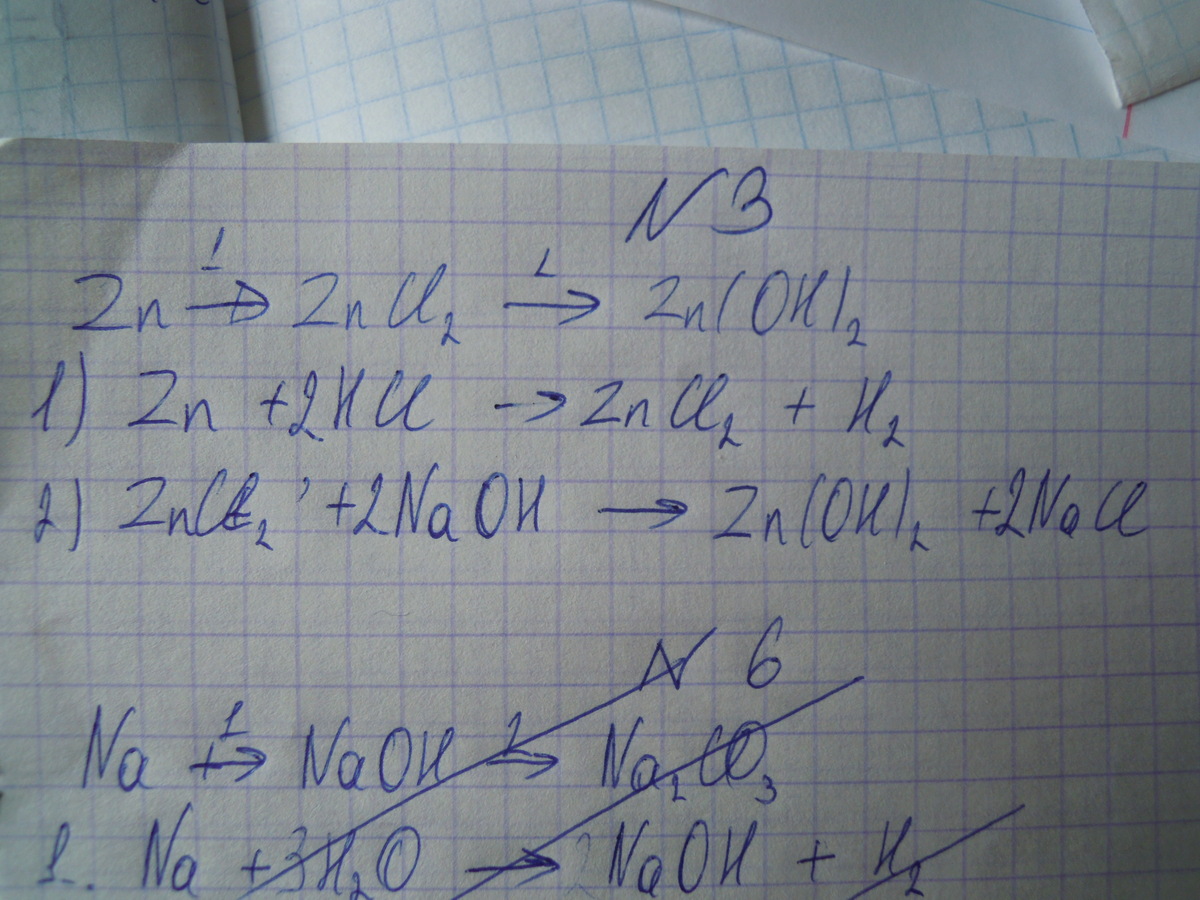 N 3
Zn →¹ ZnCl₂ →² Zn(OH)₂
1) Zn + 2HCl → ZnCl₂ + H₂
2) ZnCl₂ + 2NaOH → Zn(OH)₂ + 2NaCl
N 6
Na →¹ NaOH →² Na₂CO₃
1. Na + 3H₂O → 2NaOH + H₂